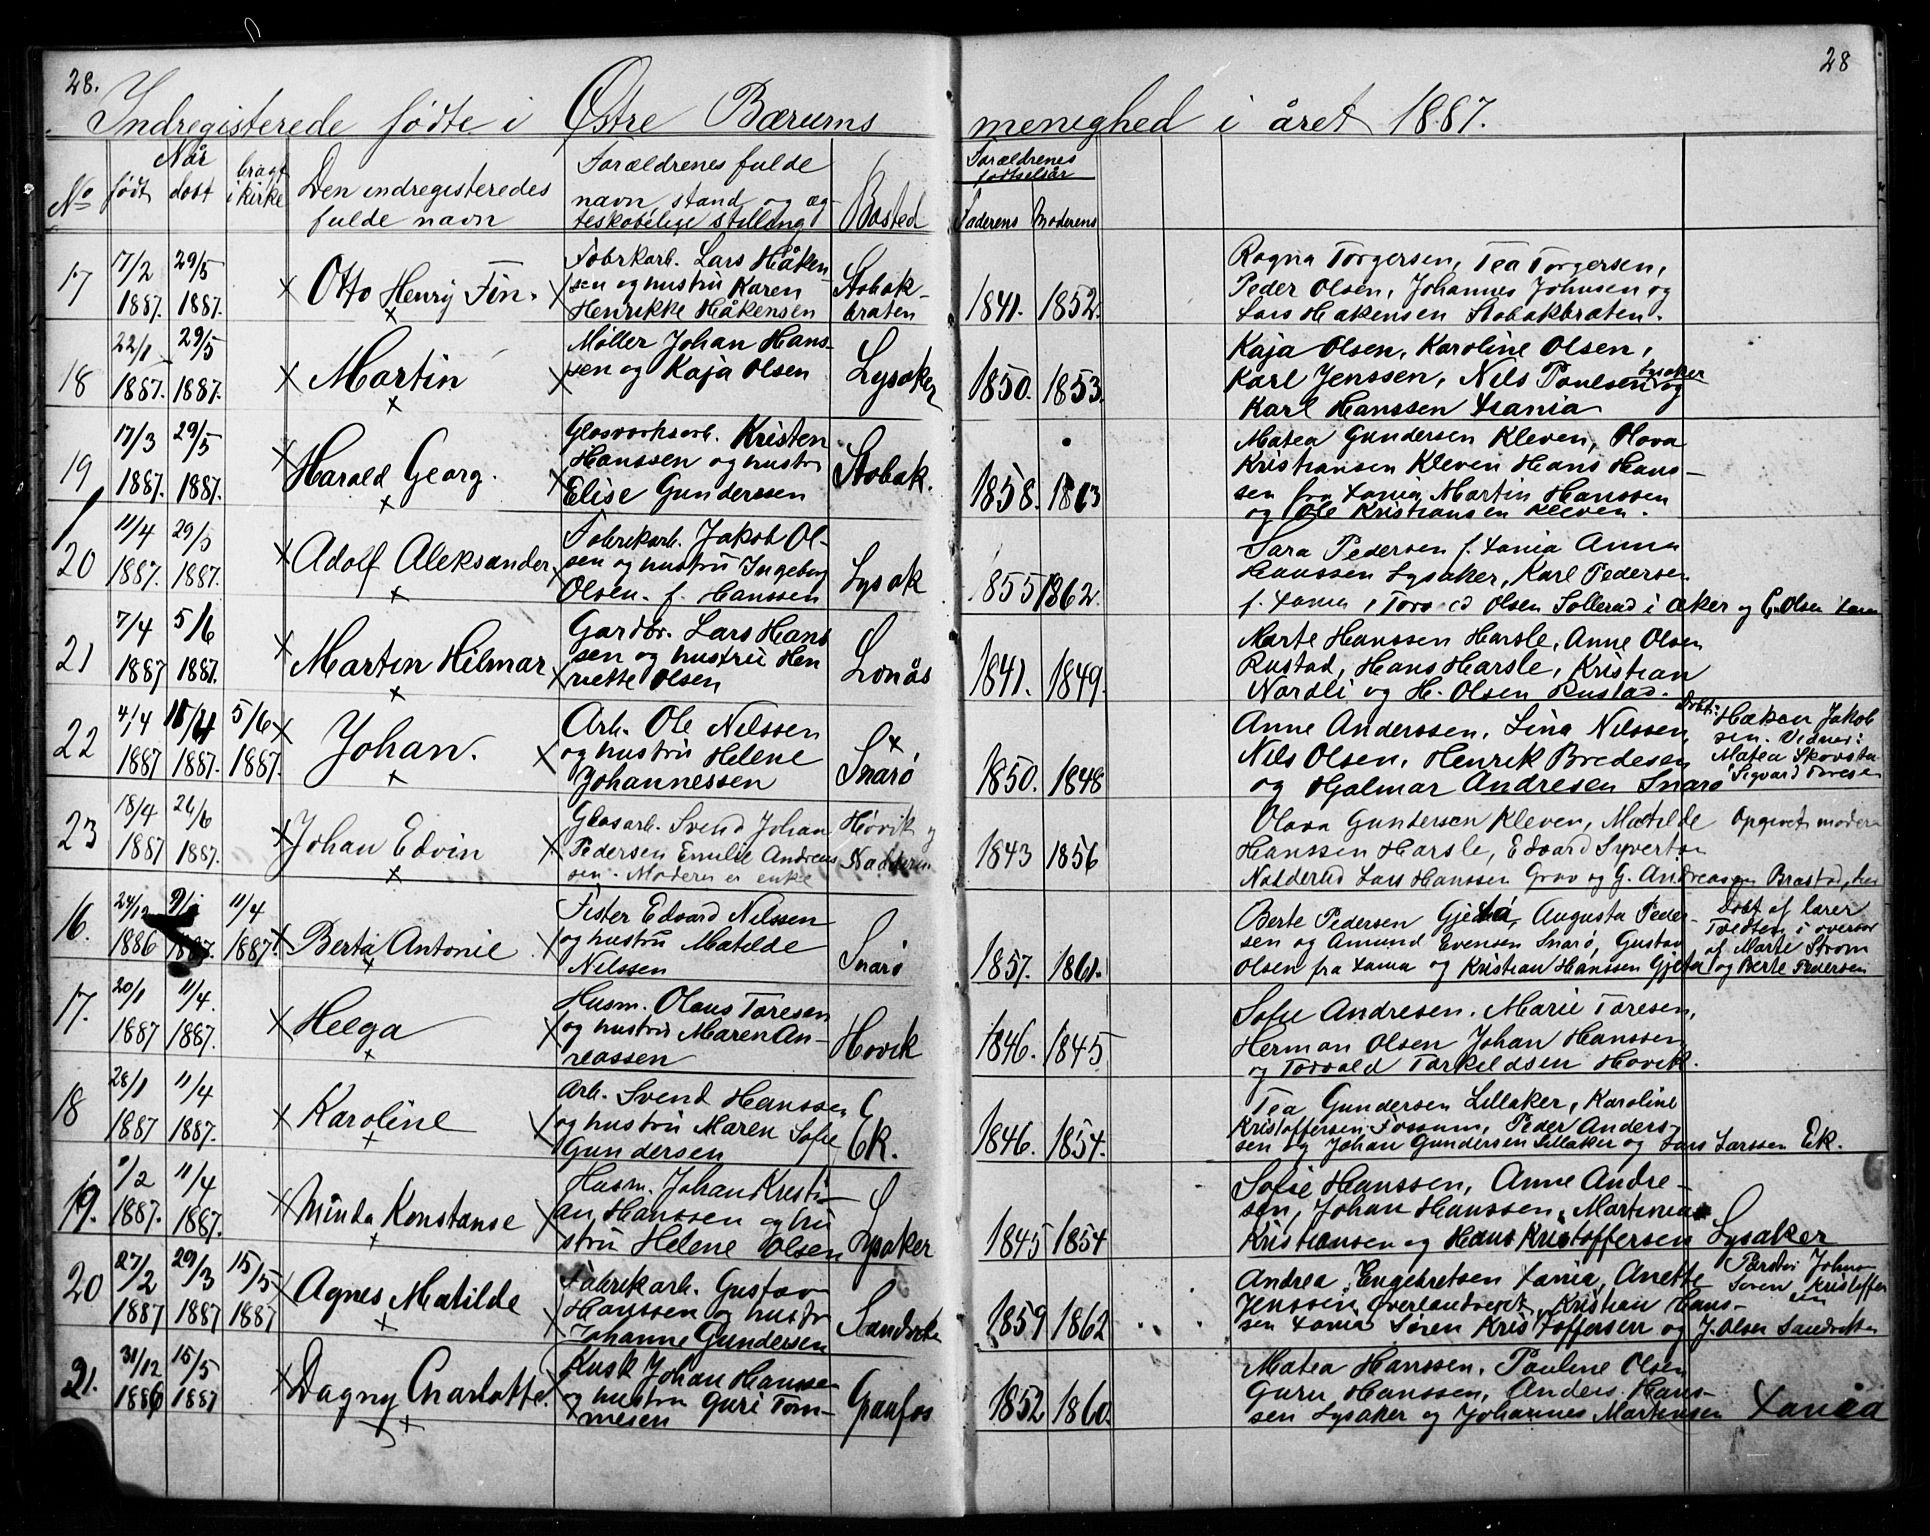 28.
28
Indregisterede fødte i Østre Bærums menighed i året 1887.
No
Når
født
døbt
bragt
i kirke
Den indregisteredes
fulde navn
Forældrenes fulde
navn, stand og æg-
teskabelige stilling
Bosted
Forældrenes
fødselsår
Faderens Moderens
17
17/2 29/5
1887. 1887.
Otto Henry Fin.
Fabrkarb. Lars Håken-
sen og hustru Karen
Henrikke Håkensen
Stabæk-
braten
1841. 1852.
Ragna Torgersen, Tea Torgersen,
Peder Olsen, Johannes Johnsen og
Lars Hakensen Stabakbraten.
18
22/1 29/5
1887. 1887.
Martin
Møller Johan Hans-
sen og Kaja Olsen
Lysaker
1850. 1853.
Kaja Olsen, Karoline Olsen,
Karl Jenssen, Nils Paulsen Lysaker og
Karl Hanssen Xania
19
17/3 29/5
1887. 1887.
Harald Georg.
Glasværksarb. Kristen
Hanssen og hustru
Elise Gunderssen
Stabak.
1858. 1863
Matea Gundersen Kleven, Olava
Kristiansen Kleven Hans Hans-
sen fra Xania, Martin Hanssen
og Ole Kristiansen Kleven.
20
11/4 29/5
1887. 1887.
Adolf Aleksander
Fabrikarb. Jakob Ol-
sen og hustru Ingeborg
Olsen. f. Hanssen
Lysak
1855 1862.
Sara Pedersen f. Xania Anna
Hanssen Lysaker, Karl Pedersen
f. Xania, Olsen Sollerud i Aker og G. Olsen Xania
21
7/4 5/6
1887 1887.
Martin Hilmar
Gardbr. Lars Hans
sen og hustru Hen
riette Olsen
Lonås
1841. 1849.
Marte Hanssen Harsle, Anne Olsen
Rustad, Hans Harsle, Kristian
Nordli og H. Olsen Rustad.
22
4/4 11/4 5/6
1887 1887. 1887.
Johan.
Arb. Ole Nilssen
og hustru Helene
Johannessen
Snarø
1850. 1848
Anne Anderssen, Lina Nilssen,
Nils Olsen, Henrik Bredesen
og Hjalmar Andresen Snarø
Døbt: Håken Jakob
sen. Vidner:
Matea Skovsta
Sigvard Toresen
23
18/4 26/6
1887 1887.
Johan Edvin
Glasarb. Svend Johan
Pedersen Emilie Andreas
sen. Moderen er enke
Høvik og
Nadderud
1843 1856
Olava Gundersen Kleven, Matilde
Hanssen Harsle, Edvard Syvertsen
Nadderud Lars Hanssen Grav og G. Andreassen Brastad, her
Opgivet modera
16.
24/12 9/1 11/4
1886 1887. 1887.
Berta Antonie
Fisker Edvard Nilssen
og hustru Matilde
Nilssen
Snarø
1857. 1861.
Berte Pedersen Gjetå, Augusta Peder-
sen og Amund Evensen Snarø, Gustav
Olsen fra Xania og Kristian Hanssen Gjeta
Døbt af lærer
Tvedten i overvær
af Marte Strøm
og Berte Pedersen
17.
20/1 11/4.
1887 1887.
Helga
Husm. Olaus Toresen
og hustru Maren An-
reassen
Høvik
1846. 1845
Sofie Andresen. Marie Toresen,
Herman Olsen Johan Hanssen
og Torvald Torkildsen Høvik.
18
28/1 11/4
1887 1887.
Karoline
Arb. Svend Hanssen
og hustru Maren Sofie
Gundersen
Ek.
1846. 1854.
Tea Gundersen Lillaker, Karoline
Kristoffersen Fossum, Peder Anders-
sen og Johan Gundersen Lillaker og Lars Larssen Ek.
19.
9/2 11/4
1887. 1887.
Minda Konstanse
Husm. Johan Kristi-
an Hanssen og hu
stru Helene Olsen
Lysaker
1845 1854
Sofie Hanssen, Anne Andre-
sen, Johan Hanssen, Martinius
Kristiansen og Hans Kristoffersen Lysaker
20
27/2 29/3 15/5
1887 1887 1887
Agnes Matilde
Fabrikarb. Gustav
Hanssen og hustr
Johanne Gundersen
Sandvika
1859 1862
Andrea Engebretsen Xania, Anette
Jenssen Øverlandseiet, Kristian Hans-
sen Xania Søren Kristoffersen og J. Olsen Sandviken
Søren Kristoffer
sen
21.
31/12 15/5
1886 1887
Dagny Charlotte.
Kusk Johan Hansse-
og hustru Guri Tom-
mesen
Granfos
1852 1860.
Matea Hanssen, Pauline Olsen
Guru Hanssen, Anders Hans-
sen Lysaker og Johannes Martinsen Xania